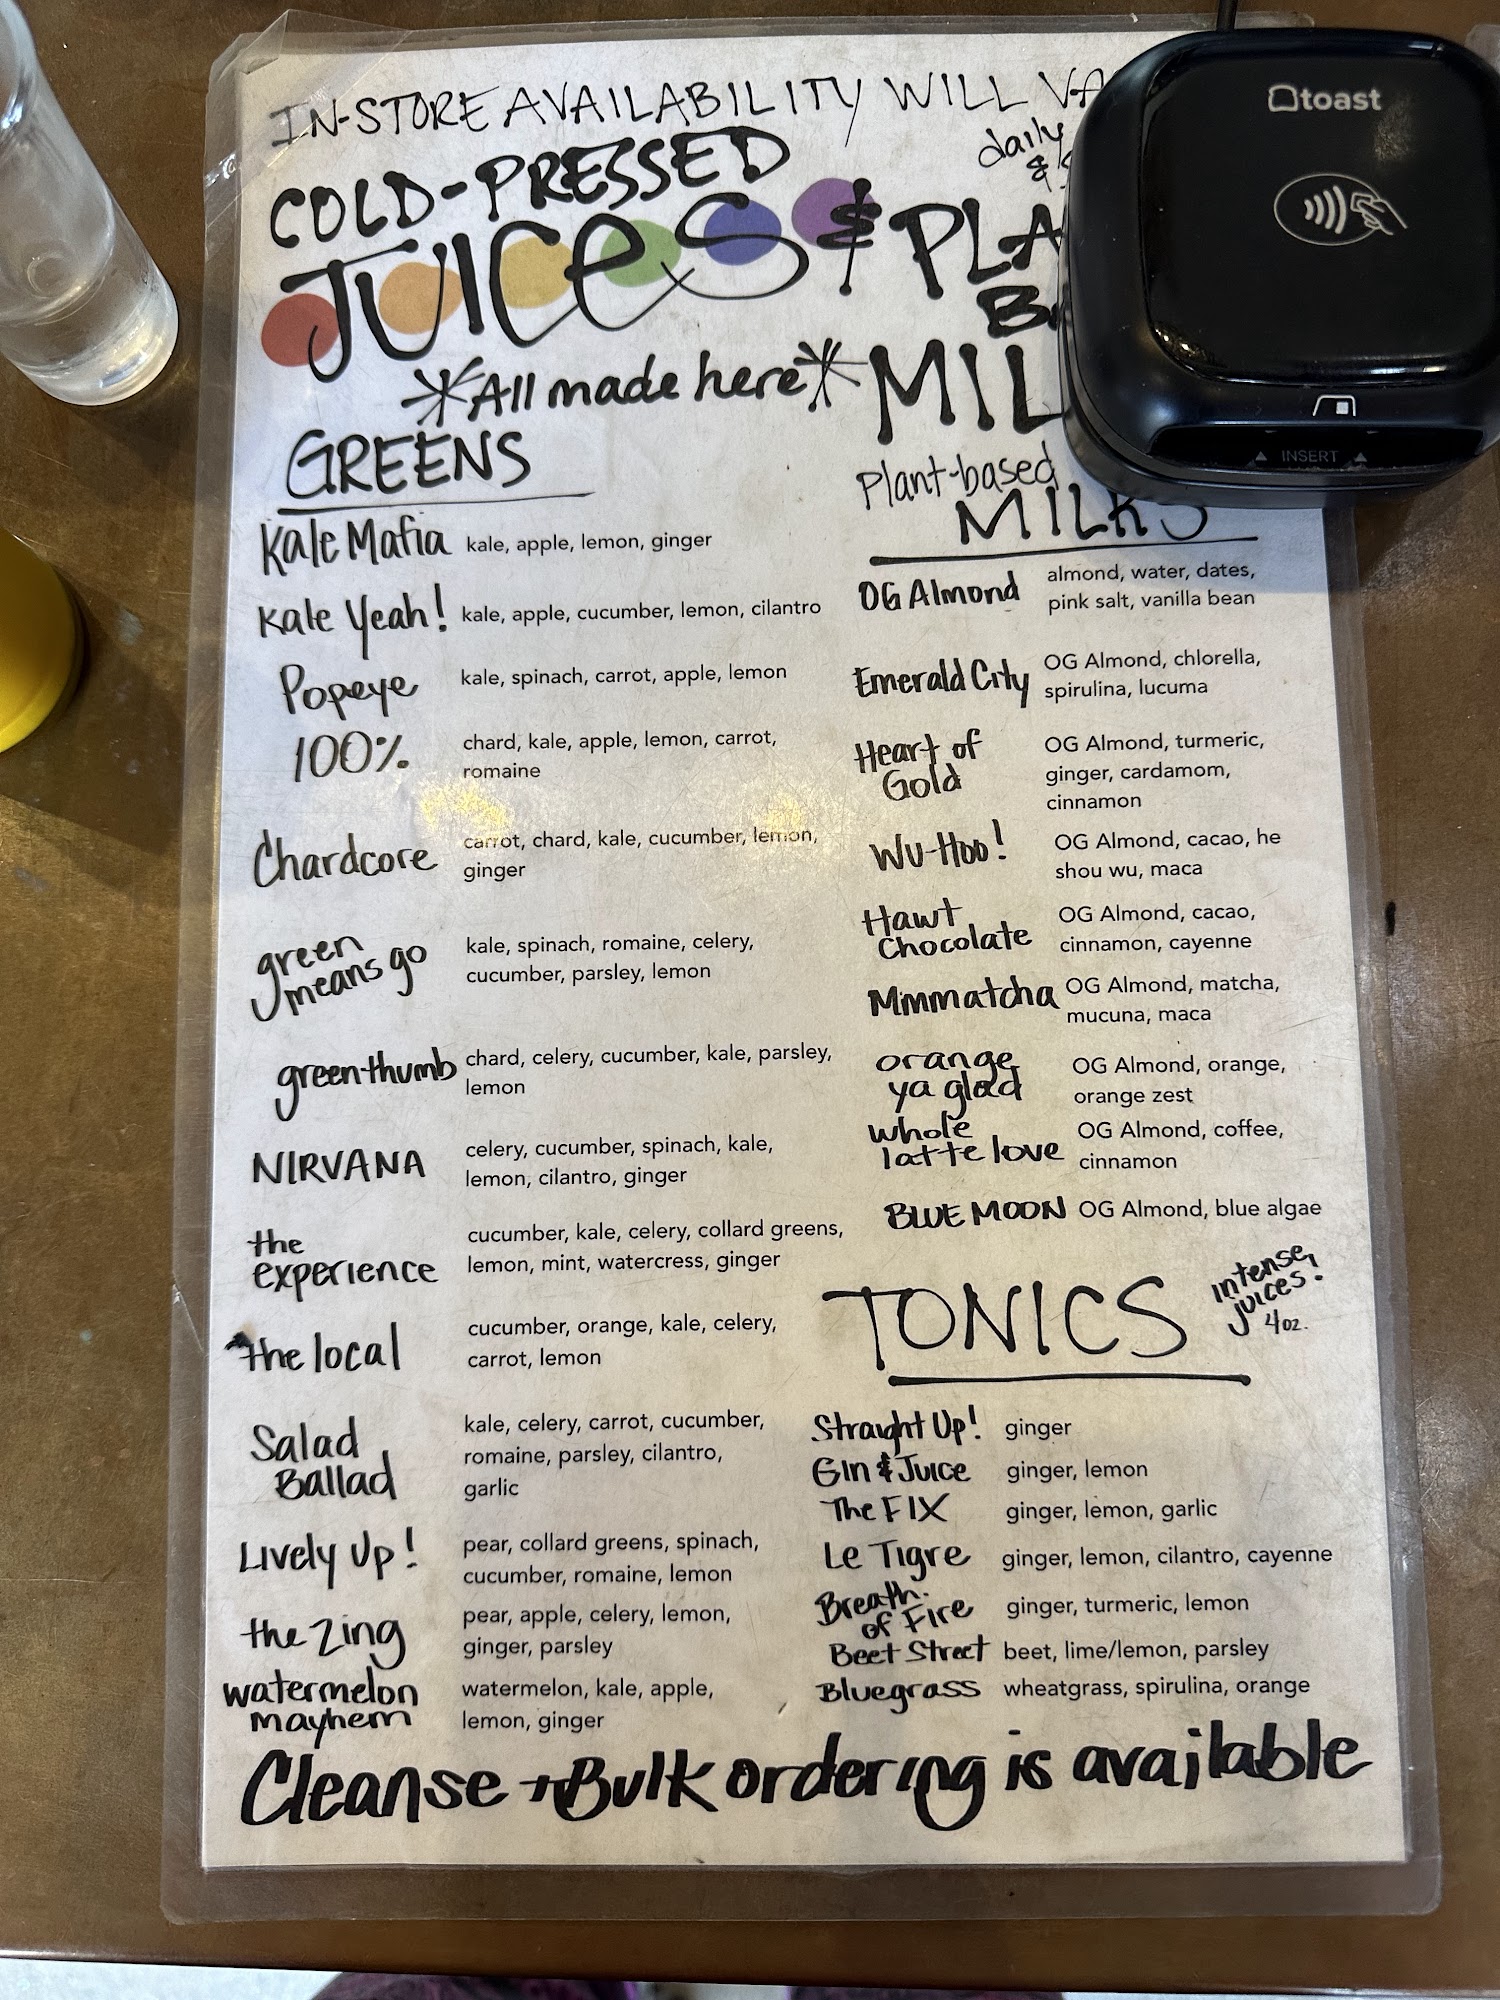 IN-STORE AVAILABILITY WILL
daily
&
COLD-PRESSED
JUICES &
*All made here*
GREENS
Kale Mafia kale, apple, lemon, ginger
Kale Yeah! kale, apple, cucumber, lemon, cilantro
Popeye kale, spinach, carrot, apple, lemon
100% chard, kale, apple, lemon, carrot,
romaine
Chardcore carrot, chard, kale, cucumber, lemon,
ginger
green
means go
kale, spinach, romaine, celery,
cucumber, parsley, lemon
green thumb chard, celery, cucumber, kale, parsley,
lemon
NIRVANA celery, cucumber, spinach, kale,
lemon, cilantro, ginger
the
experience
cucumber, kale, celery, collard greens,
lemon, mint, watercress, ginger
the local cucumber, orange, kale, celery,
carrot, lemon
Salad
Ballad
kale, celery, carrot, cucumber,
romaine, parsley, cilantro,
garlic
Lively Up! pear, collard greens, spinach,
cucumber, romaine, lemon
the Zing pear, apple, celery, lemon,
ginger, parsley
watermelon
mayhem
watermelon, kale, apple,
lemon, ginger
Plant-based
MILKS
OG Almond almond, water, dates,
pink salt, vanilla bean
Emerald City OG Almond, chlorella,
spirulina, lucuma
Heart of
Gold
OG Almond, turmeric,
ginger, cardamom,
cinnamon
Wu-Hoo! OG Almond, cacao, he
shou wu, maca
Hawt
Chocolate
OG Almond, cacao,
cinnamon, cayenne
Mmmatcha OG Almond, matcha,
mucuna, maca
orange
ya glad
OG Almond, orange,
orange zest
whole
latte love
OG Almond, coffee,
cinnamon
BLUE MOON OG Almond, blue algae
TONICS
intense,
juices!
4oz.
Straight Up! ginger
Gin & Juice ginger, lemon
The FIX ginger, lemon, garlic
Le Tigre ginger, lemon, cilantro, cayenne
Breath
of Fire
ginger, turmeric, lemon
Beet Street beet, lime/lemon, parsley
Bluegrass wheatgrass, spirulina, orange
Cleanse + Bulk ordering is available
toast
INSERT